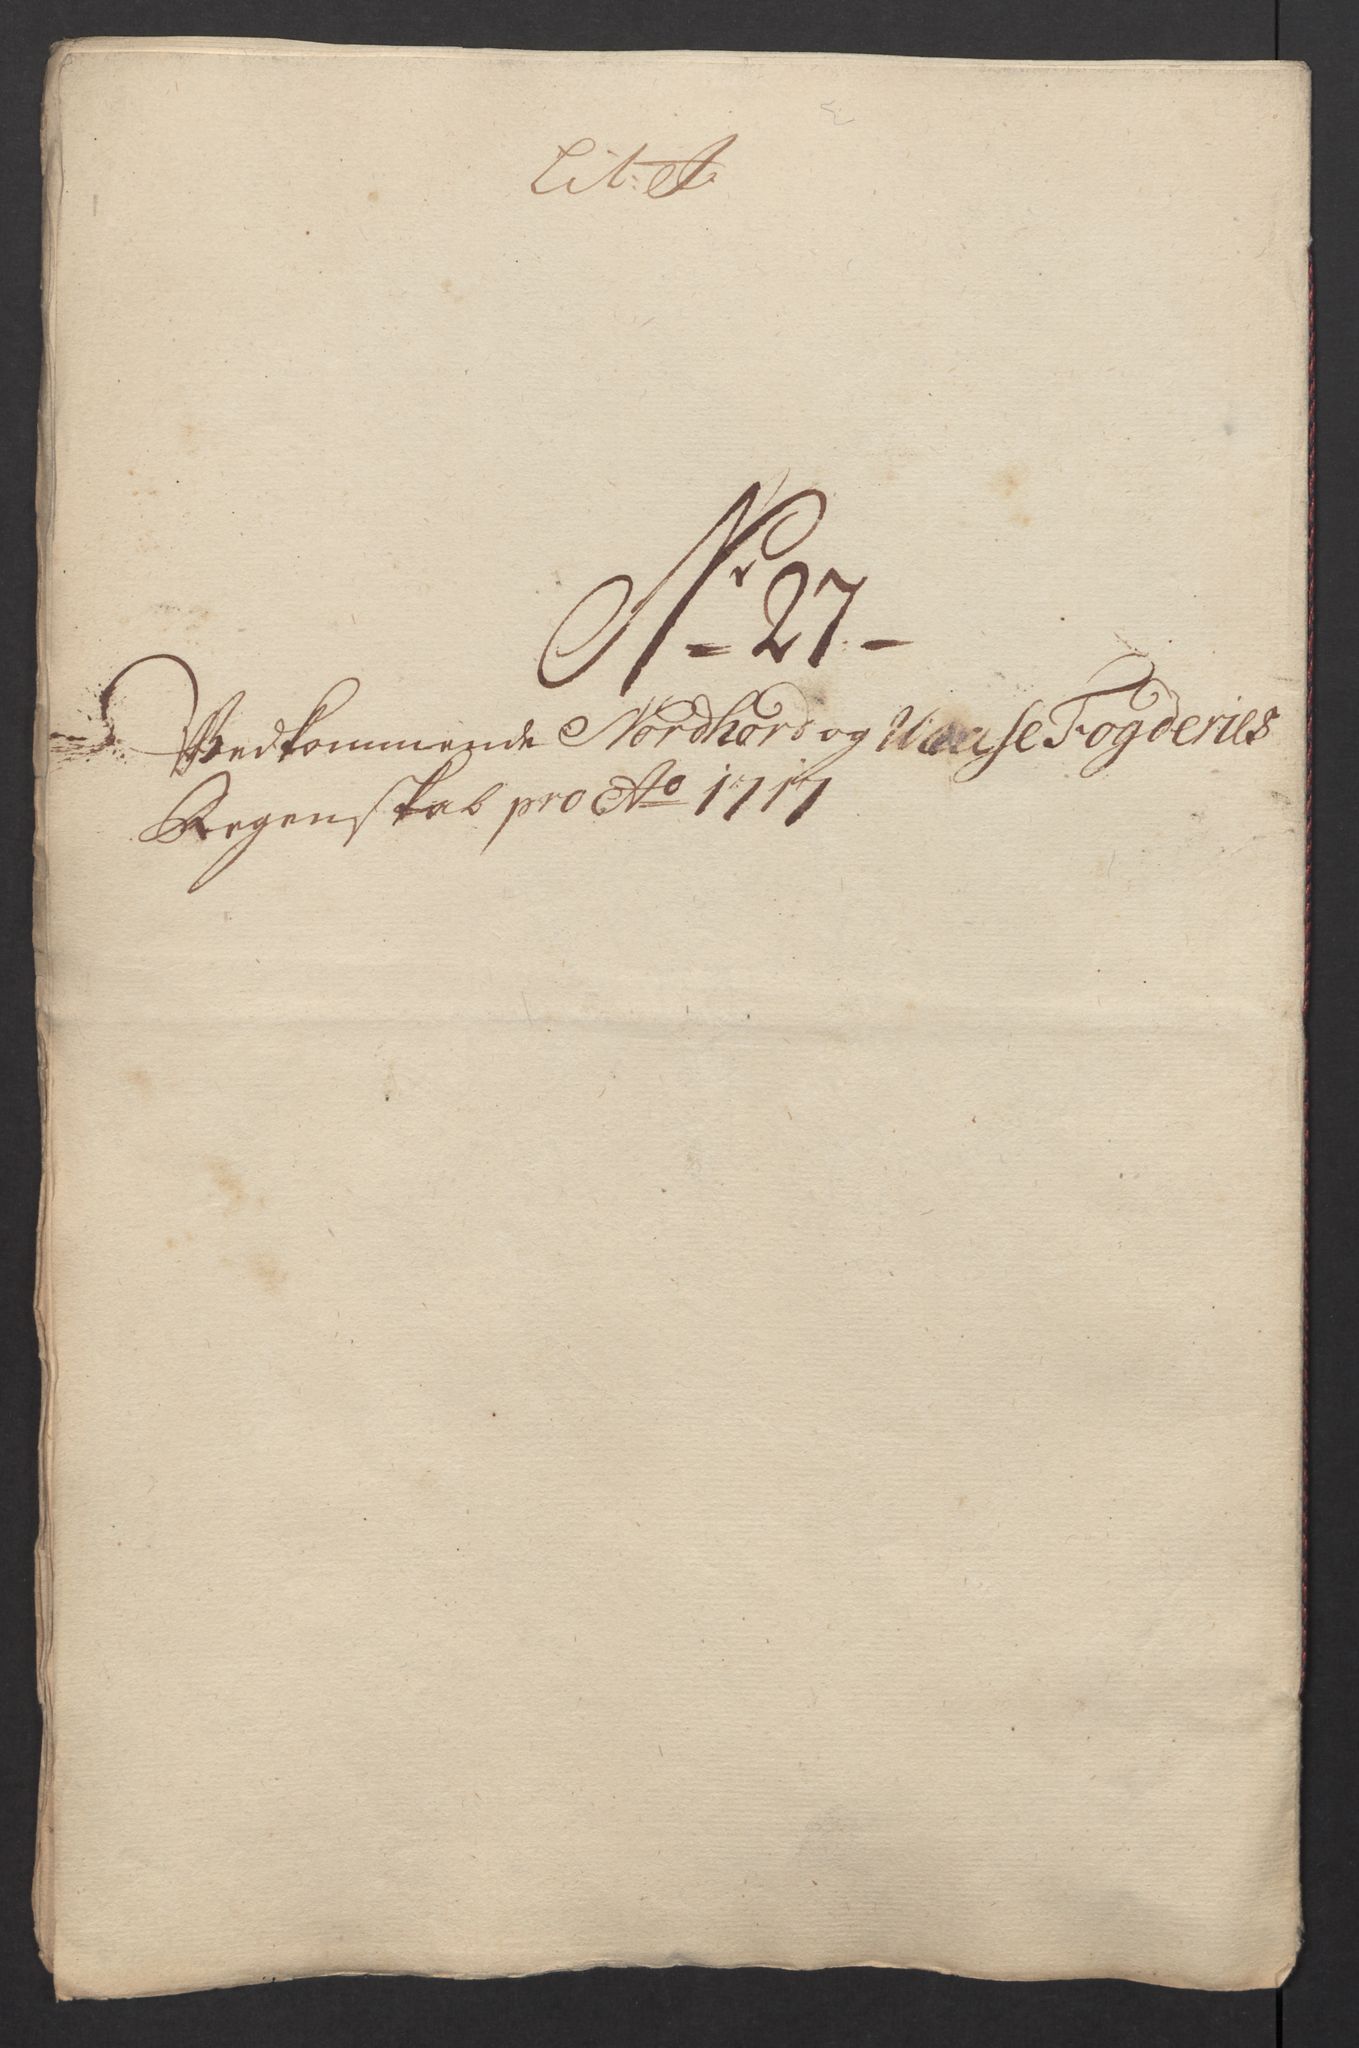 Lit: J:
Nr 27
Vedkommende Nordhord og Waase Fogderies
Regenskab pro Ao 1717